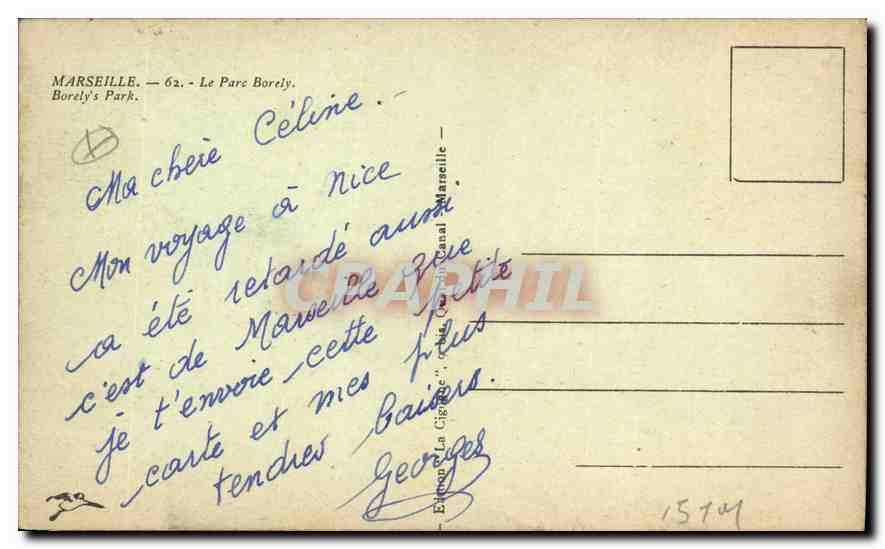 MARSEILLE. — 62. - Le Parc Borely.
Borely's Park.
Ma chère Céline. -
Mon voyage à Nice
a été retardé aussi
c'est de Marseille que
je t'envoie cette petite
carte et mes plus
tendres baisers.
Georges
— Edition "La Cigogne", bis, Quai du Canal, Marseille —
CPAPHIL